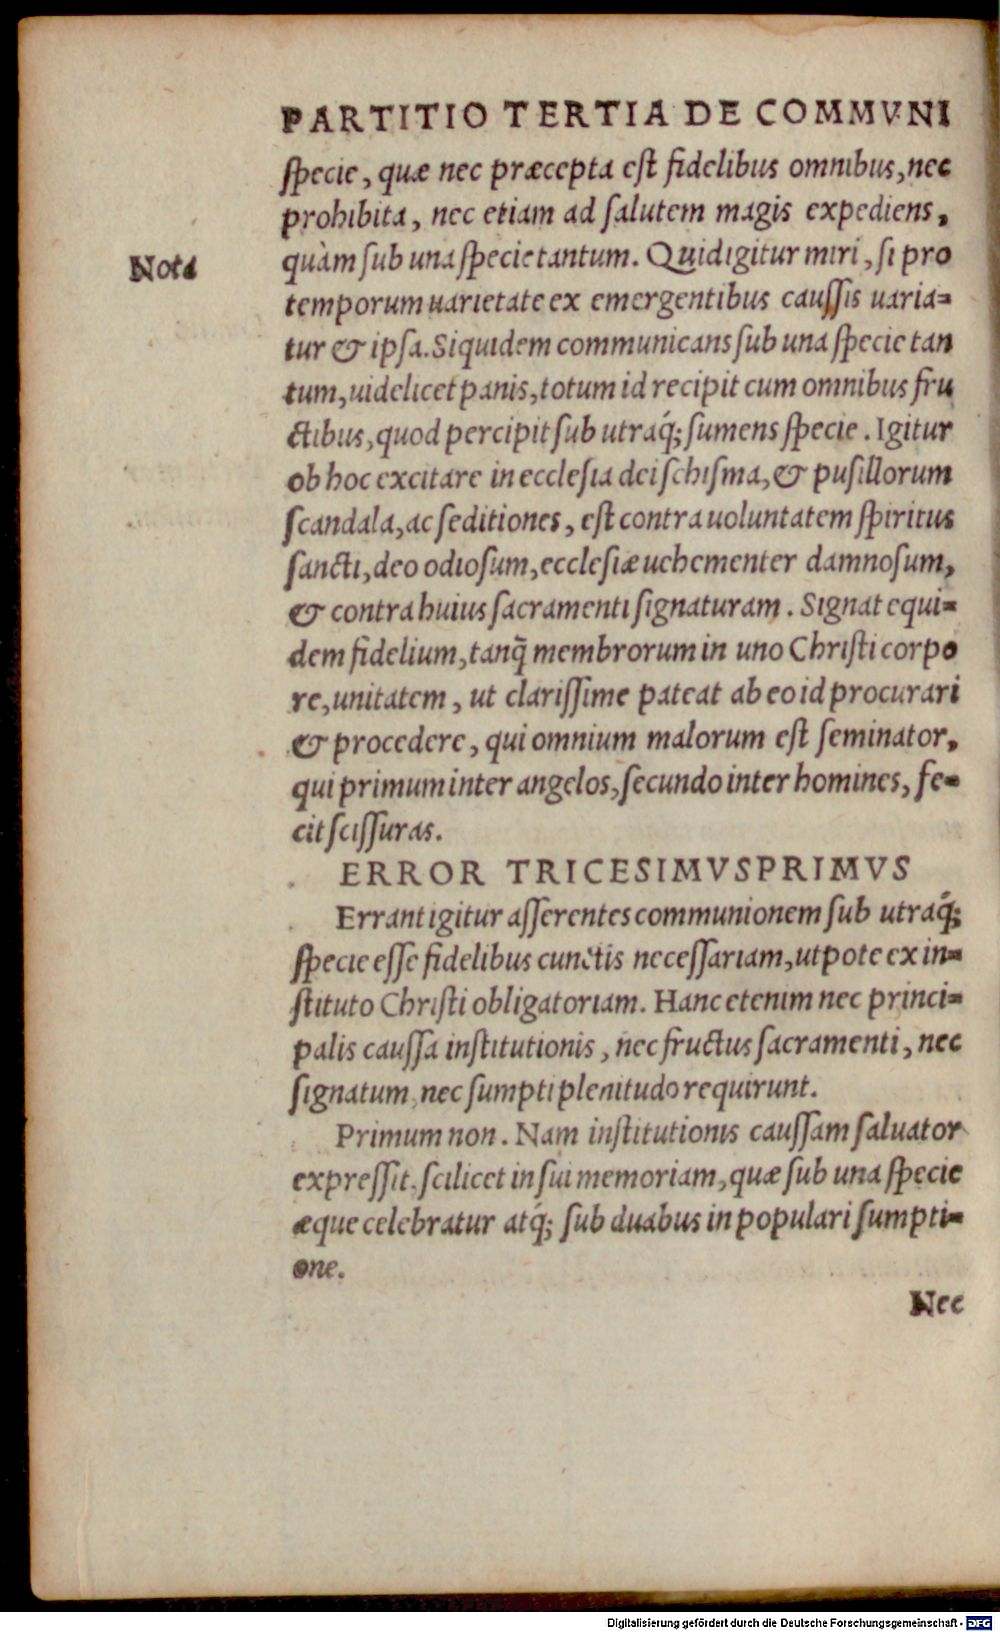 PARTITIO TERTIA DE COMMVNI
ſpecie, quæ nec præcepta eſt fidelibus omnibus, nec
prohibita, nec etiam ad ſalutem magis expediens,
Nota
quàm ſub una ſpecie tantum. Quid igitur miri, ſi pro
temporum uarietate ex emergentibus cauſſis uaria-
tur & ipſa. Siquidem communicans ſub una ſpecie tan
tum, uidelicet panis, totum id recipit cum omnibus fru
ctibus, quod percipit ſub utraq́; ſumens ſpecie. Igitur
ob hoc excitare in eccleſia dei ſchiſma, & puſillorum
ſcandala, ac ſeditiones, eſt contra uoluntatem ſpiritus
ſancti, deo odioſum, eccleſiæ uehementer damnoſum,
& contra huius ſacramenti ſignaturam. Signat equi-
dem fidelium, tanq̃ membrorum in uno Chriſti corpo
re, unitatem, ut clariſſime pateat ab eo id procurari
& procedere, qui omnium malorum eſt ſeminator,
qui primum inter angelos, ſecundo inter homines, fe-
cit ſciſſuras.
ERROR TRICESIMVSPRIMVS
Errant igitur aſſerentes communionem ſub utraq́;
ſpecie eſſe fidelibus cunctis neceſſariam, utpote ex in-
ſtituto Chriſti obligatoriam. Hanc etenim nec princi-
palis cauſſa inſtitutionis, nec fructus ſacramenti, nec
ſignatum, nec ſumpti plenitudo requirunt.
Primum non. Nam inſtitutionis cauſſam ſaluator
expreſſit, ſcilicet in ſui memoriam, quæ ſub una ſpecie
æque celebratur atq́; ſub duabus in populari ſumpti-
one.
Nec
Digitalisierung gefördert durch die Deutsche Forschungsgemeinschaft - DFG